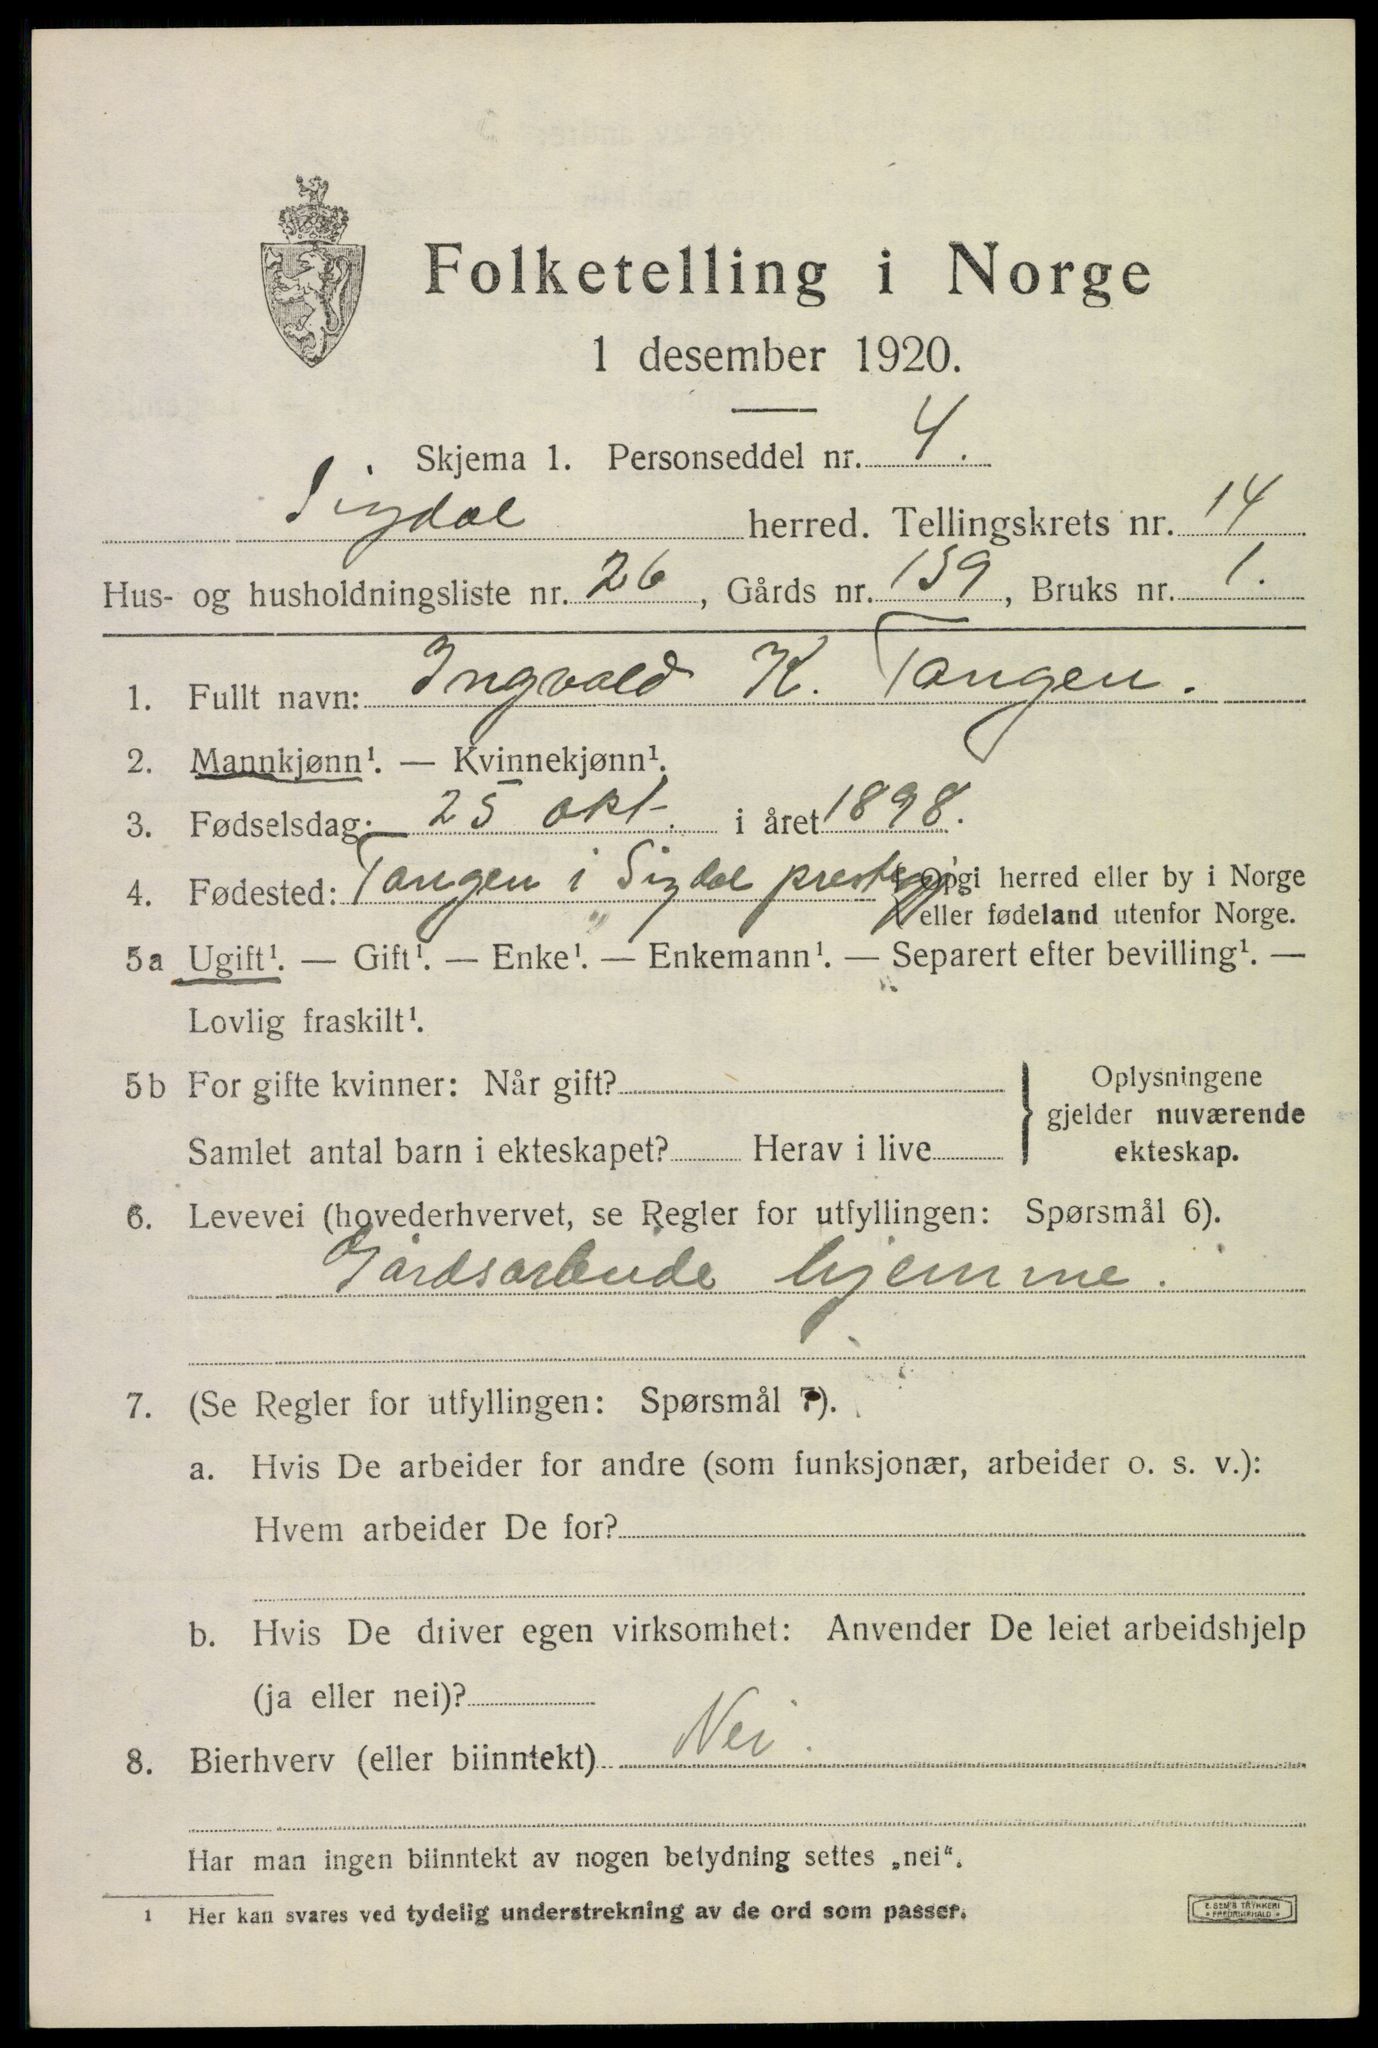 Folketelling i Norge
1 desember 1920.
Skjema 1. Personseddel nr. 4.
Sigdal herred. Tellingskrets nr. 14
Hus- og husholdningsliste nr. 26, Gårds nr. 159, Bruks nr. 1.
1. Fullt navn: Ingvald K. Tangen.
2. Mannkjønn¹. — Kvinnekjønn¹.
3. Fødselsdag: 25 okt. i året 1898.
4. Fødested: Tangen i Sigdal presteg. Opgi herred eller by i Norge
eller fødeland utenfor Norge.
5a Ugift¹. — Gift¹. — Enke¹. — Enkemann¹. — Separert efter bevilling¹. —
Lovlig fraskilt¹.
5b For gifte kvinner: Når gift?
Samlet antal barn i ekteskapet? Herav i live
Oplysningene
gjelder nuværende
ekteskap.
6. Levevei (hovederhvervet, se Regler for utfyllingen: Spørsmål 6).
Gårdsarbeide hjemme.
7. (Se Regler for utfyllingen: Spørsmål 7).
a. Hvis De arbeider for andre (som funksjonær, arbeider o. s. v.):
Hvem arbeider De for?
b. Hvis De driver egen virksomhet: Anvender De leiet arbeidshjelp
(ja eller nei)?
8. Bierhverv (eller biinntekt) Nei.
Har man ingen biinntekt av nogen betydning settes „nei“.
¹ Her kan svares ved tydelig understrekning av de ord som passer.
E. SEM'S TRYKKERI
FREDRIKSHALD